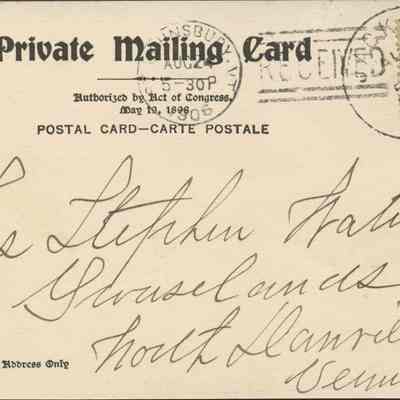 Private Mailing Card
Authorized by Act of Congress,
May 19, 1898
POSTAL CARD—CARTE POSTALE
NSBURY, VT.
AUG 24
5-30P
1906
RECEIVED
s Stephen Wat
Grouselands
North Danvil
Verm
Address Only